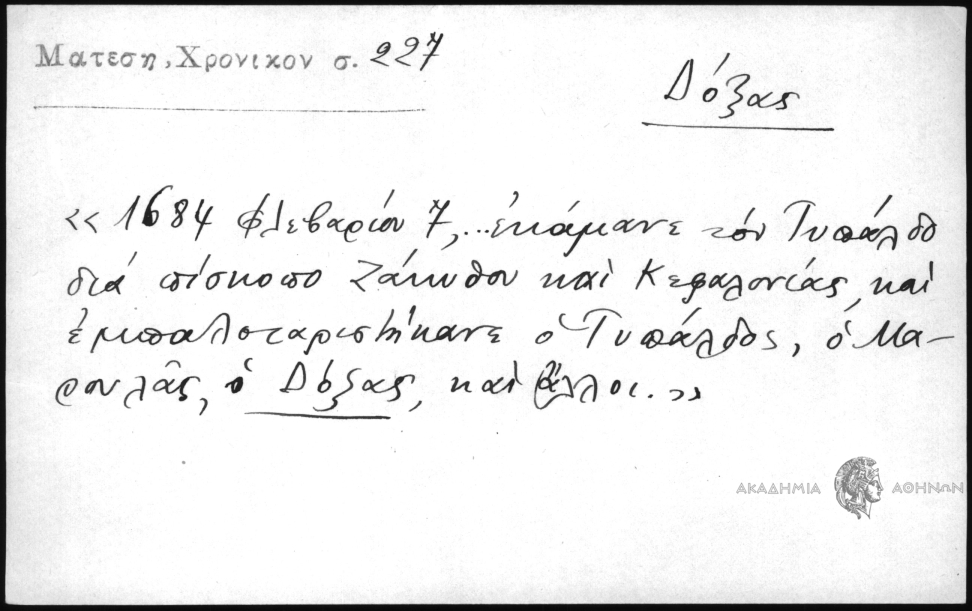 Ματεση, Χρονικον σ. 227
Δόξας
«1684 Φλεβαρίου 7, ...ἐκάμανε τόν Τυπάλδο
διά πίσκοπο Ζάκυθου καί Κεφαλονίας, καί
ἐμπαλοταριστήκανε ὁ Τυπάλδος, ὁ Μα-
ρουλᾶς, ὁ Δόξας, καί ἄλλοι.»
ΑΚΑΔΗΜΙΑ ΑΘΗΝΩΝ